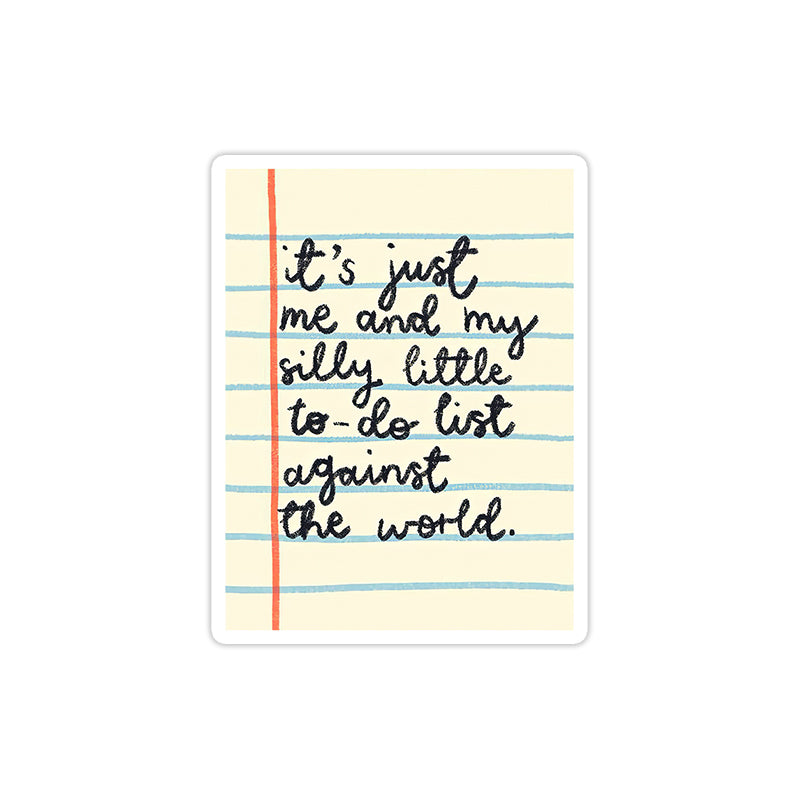 it's just
me and my
silly little
to-do list
against
the world.